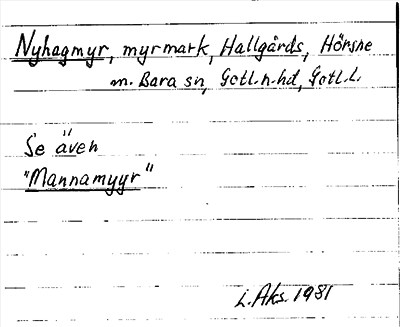 Nyhagmyr, myrmark, Hallgårds, Hörsne
m. Bara sn, Gotl. n. hd, Gotl. l.
Se även
"Mannamyyr"
L. Aks. 1981